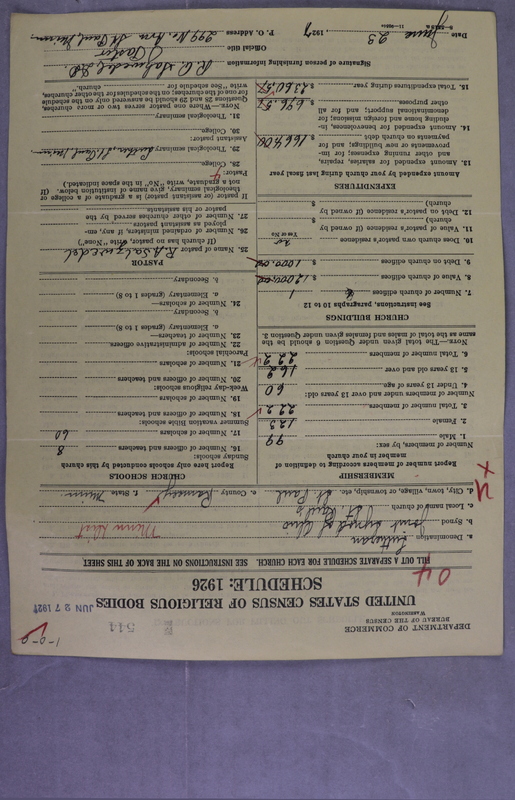 DEPARTMENT OF COMMERCE
BUREAU OF THE CENSUS
WASHINGTON
544
JUN 27 1927
1-0-0
UNITED STATES CENSUS OF RELIGIOUS BODIES
SCHEDULE: 1926
04
FILL OUT A SEPARATE SCHEDULE FOR EACH CHURCH. SEE INSTRUCTIONS ON THE BACK OF THIS SHEET
a. Denomination Lutheran
b. Synod Joint Synod of Ohio
Minn Dist
c. Local name of church St Paul's
d. City, town, village, or township, etc. St Paul e. County Ramsey f. State Minn
MEMBERSHIP
Report number of members according to definition of member in your church
Number of members, by sex:
1. Male 99
2. Female 123
3. Total number of members 222
Number of members under and over 13 years old:
4. Under 13 years of age 60
5. 13 years old and over 162
6. Total number of members 222
NOTE.—The total given under Question 6 should be the same as the total of males and females given under Question 3.
CHURCH BUILDINGS
See instructions, paragraphs 10 to 12
7. Number of church edifices 1
8. Value of church edifices $ 12000.00
9. Debt on church edifices $ 1000.00
10. Does church own pastor's residence no
Yes or No
11. Value of pastor's residence (if owned by church) $
12. Debt on pastor's residence (if owned by church) $
EXPENDITURES
Amount expended by your church during last fiscal year
13. Amount expended for salaries, repairs, and other running expenses; for improvements or new buildings; and for payments on church debt $ 1664.00
14. Amount expended for benevolence, including home and foreign missions; for denominational support; and for all other purposes $ 696.57
15. Total expenditures during year $ 2360.57
CHURCH SCHOOLS
Report here only schools conducted by this church
Sunday schools:
16. Number of officers and teachers 8
17. Number of scholars 60
Summer vacation Bible schools:
18. Number of officers and teachers
19. Number of scholars
Week-day religious schools:
20. Number of officers and teachers
21. Number of scholars
Parochial schools:
22. Number of administrative officers
23. Number of teachers—
a. Elementary (grades 1 to 8)
b. Secondary
24. Number of scholars—
a. Elementary (grades 1 to 8)
b. Secondary
PASTOR
25. Name of pastor R. A. Salzwedel
(If church has no pastor, write "None")
26. Number of ordained ministers, if any, employed as assistant pastors
27. Number of other churches served by the pastor or his assistants
If pastor (or assistant pastor) is a graduate of a college or theological seminary, give name of institution below. (If not a graduate, write "No" in the space indicated.)
Pastor:
28. College
29. Theological seminary Luther St Paul, Minn
Assistant pastor:
30. College
31. Theological seminary
NOTE.—Where one pastor serves two or more churches, Questions 25 and 26 should be answered only on the schedule for one of the churches; on the schedules for the other churches, write "See schedule for church."
Signature of person furnishing information R. A. Salzwedel
Official title Pastor
Date June 23, 1927 P. O. Address St Paul, Minn